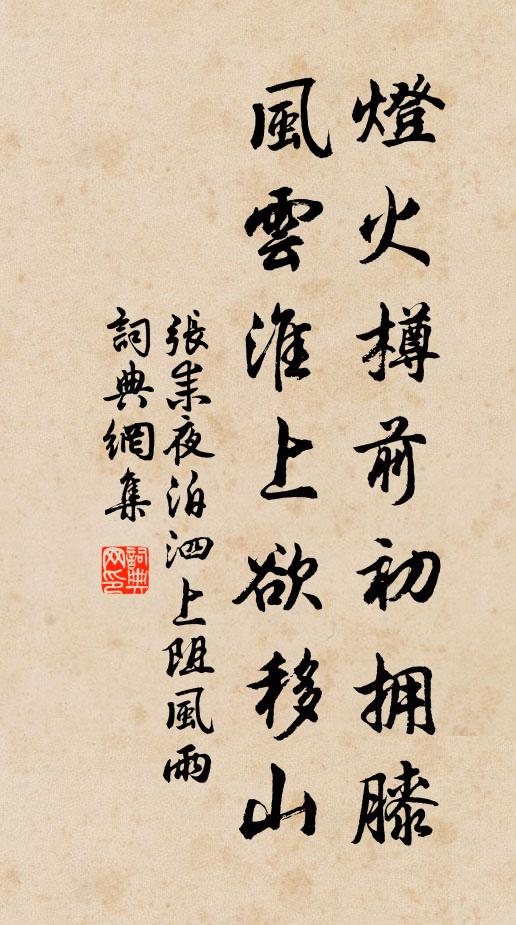 燈火樽前初拥膝
風雲淮上欲移山
張耒夜泊泗上阻風雨
詞典網集
詞典
网印